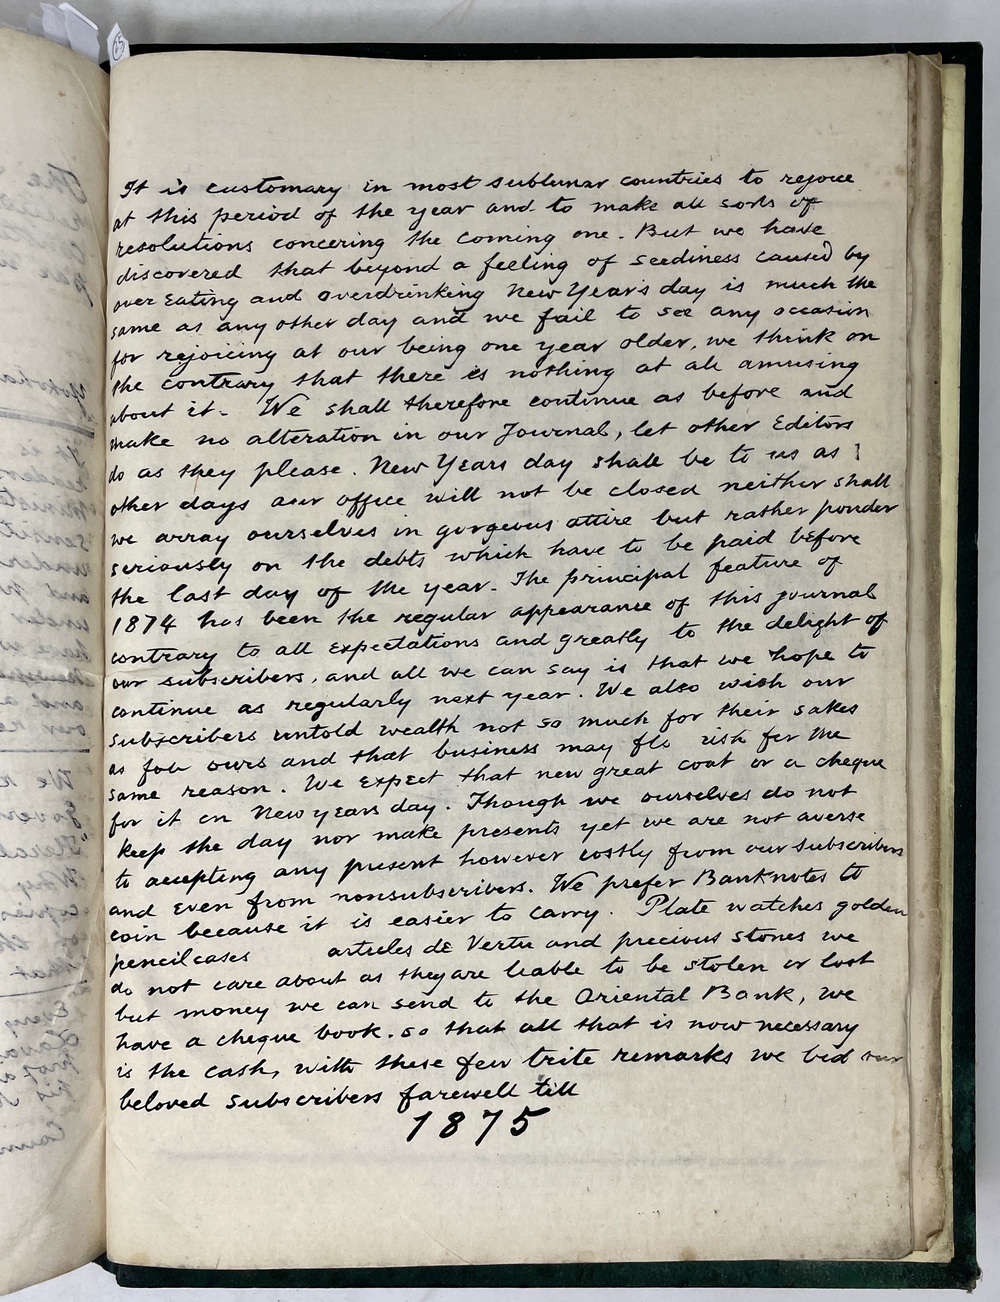 It is customary in most sublunar countries to rejoice
at this period of the year and to make all sorts of
resolutions concering the coming one. But we have
discovered that beyond a feeling of seediness caused by
over Eating and overdrinking New Year's day is much the
same as any other day and we fail to see any occasion
for rejoicing at our being one year older, we think on
the contrary that there is nothing at all amusing
about it - We shall therefore continue as before and
make no alteration in our Journal, let other Editors
do as they please. New Years day shall be to us as
other days our office will not be closed neither shall
we array ourselves in gorgeous attire but rather ponder
seriously on the debts which have to be paid before
the last day of the year. The principal feature of
1874 has been the regular appearance of this journal
contrary to all expectations and greatly to the delight of
our subscribers, and all we can say is that we hope to
continue as regularly next year. We also wish our
subscribers untold wealth not so much for their sakes
as for ours and that business may for the
same reason. We expect that new great coat or a cheque
for it on New years day. Though we ourselves do not
keep the day nor make presents yet we are not averse
to accepting any present however costly from our subscribers
and even from nonsubscribers. We prefer Banknotes to
coin because it is easier to carry. Plate watches golden
pencilcases articles de Vertu and precious stones we
do not care about as they are liable to be stolen or lost
but money we can send to the Oriental Bank, we
have a cheque book. so that all that is now necessary
is the cash, with these few trite remarks we bid our
beloved subscribers farewell till
1875